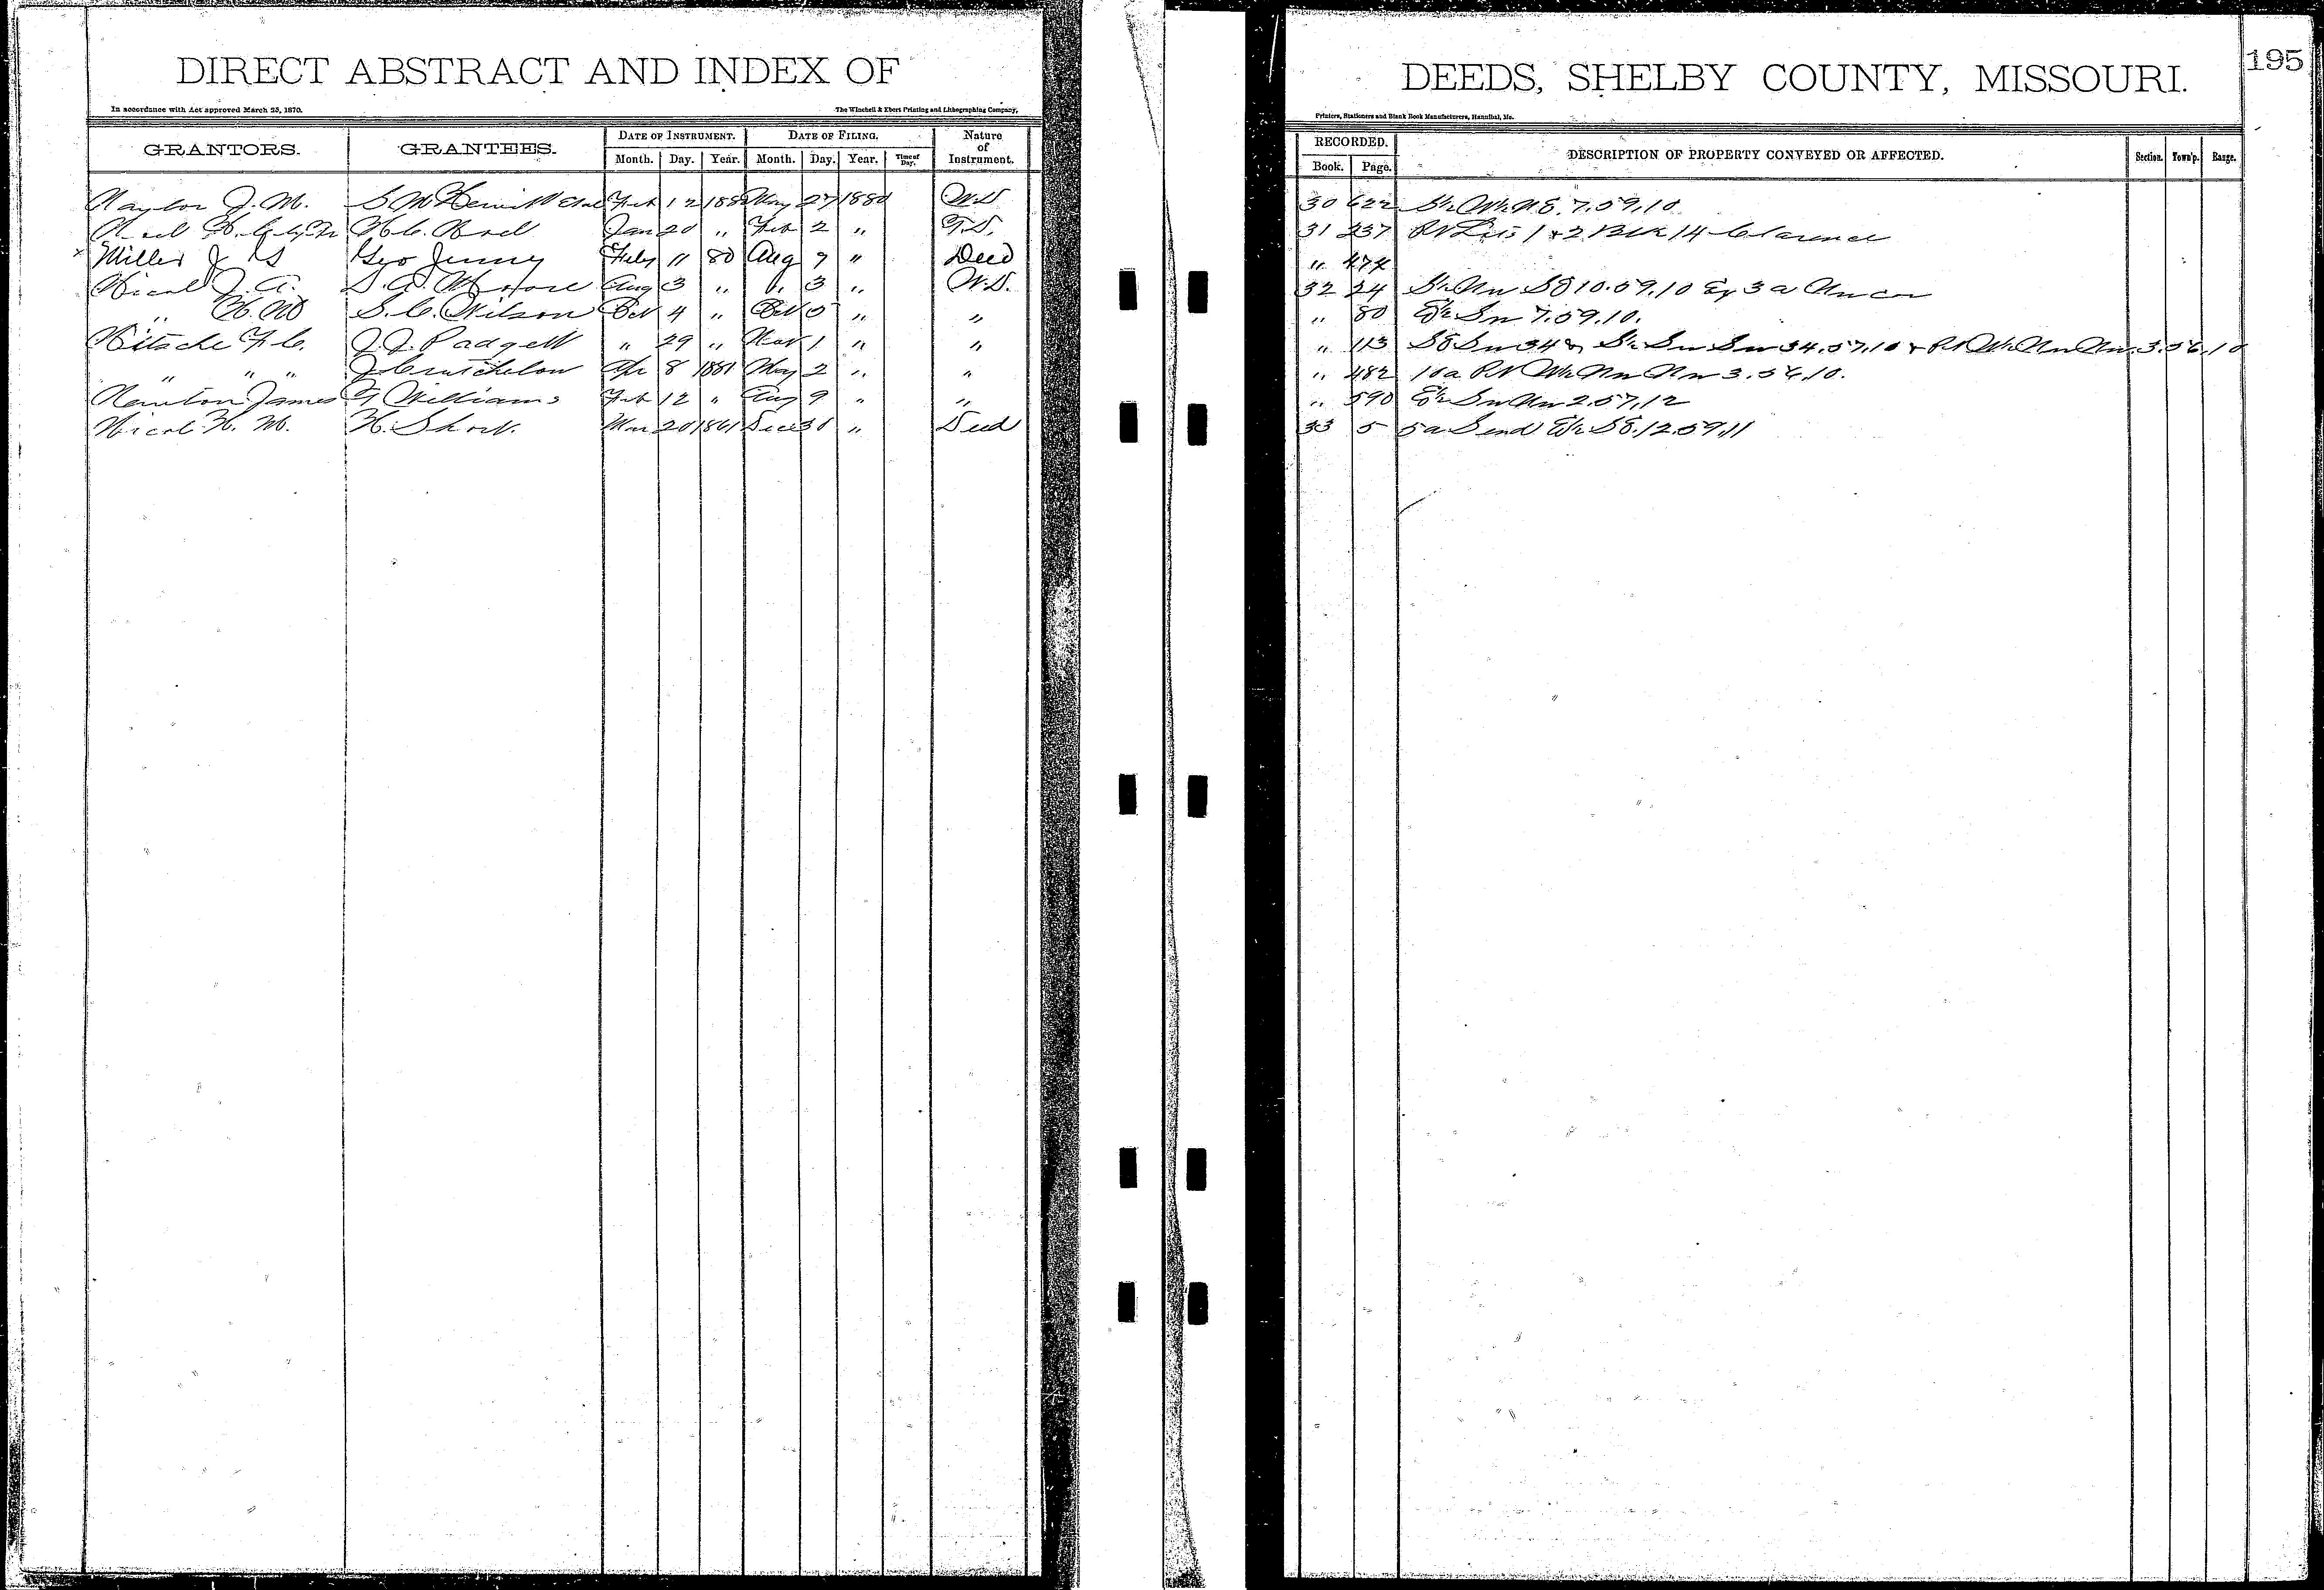 DIRECT ABSTRACT AND INDEX OF
In accordance with Act approved March 25, 1870. The Winchell & Ebert Printing and Lithographing Company,
GRANTORS. GRANTEES. DATE OF INSTRUMENT. DATE OF FILING. Nature of Instrument.
Month. Day. Year. Month. Day. Year. Time of Day.
Naylor J. M. S. M. et al Feb 12 1880 May 27 1880 W.D
Noel H. C. Noel Jan 20 " Feb 2 " T.D.
x Miller J S Geo Jenny July 11 80 Aug 7 " Deed
Nicol J. A. S. A. Moore Aug 3 " " 3 " W.D.
" H. M S. C. Wilson Oct 4 " Oct 5 " "
Nitsche F. C. J. J. Padgett " 29 " Nov 1 " "
" " " J. Crutchelow Apr 8 1881 May 2 " "
Newton James Williams Feb 12 " Aug 9 " "
Nicol H. M. H. Shork. Mar 20 1861 Dec 30 " Deed
195
DEEDS, SHELBY COUNTY, MISSOURI.
Printers, Stationers and Blank Book Manufacturers, Hannibal, Mo.
RECORDED. DESCRIPTION OF PROPERTY CONVEYED OR AFFECTED. Section. Town'p. Range.
Book. Page.
30 622 S½ W½ NE. 7.59.10
31 237 Pt Lots 1 + 2 Blk 14 Clarence
" 474
32 24 S½ Nw SE 10.59.10 Ex 3 a Nw cor
" 80 E½ Sw 7.59.10.
" 113 SE Sw 34 & S½ Sw Sw 34.57.10 + Pt W½ Nw Nw 3.56.10
" 482 10 a Pt W½ Nw Nw 3.56.10.
" 590 E½ Sw Nw 2.57.12
33 5 5 a S end E½ SE. 12.59.11